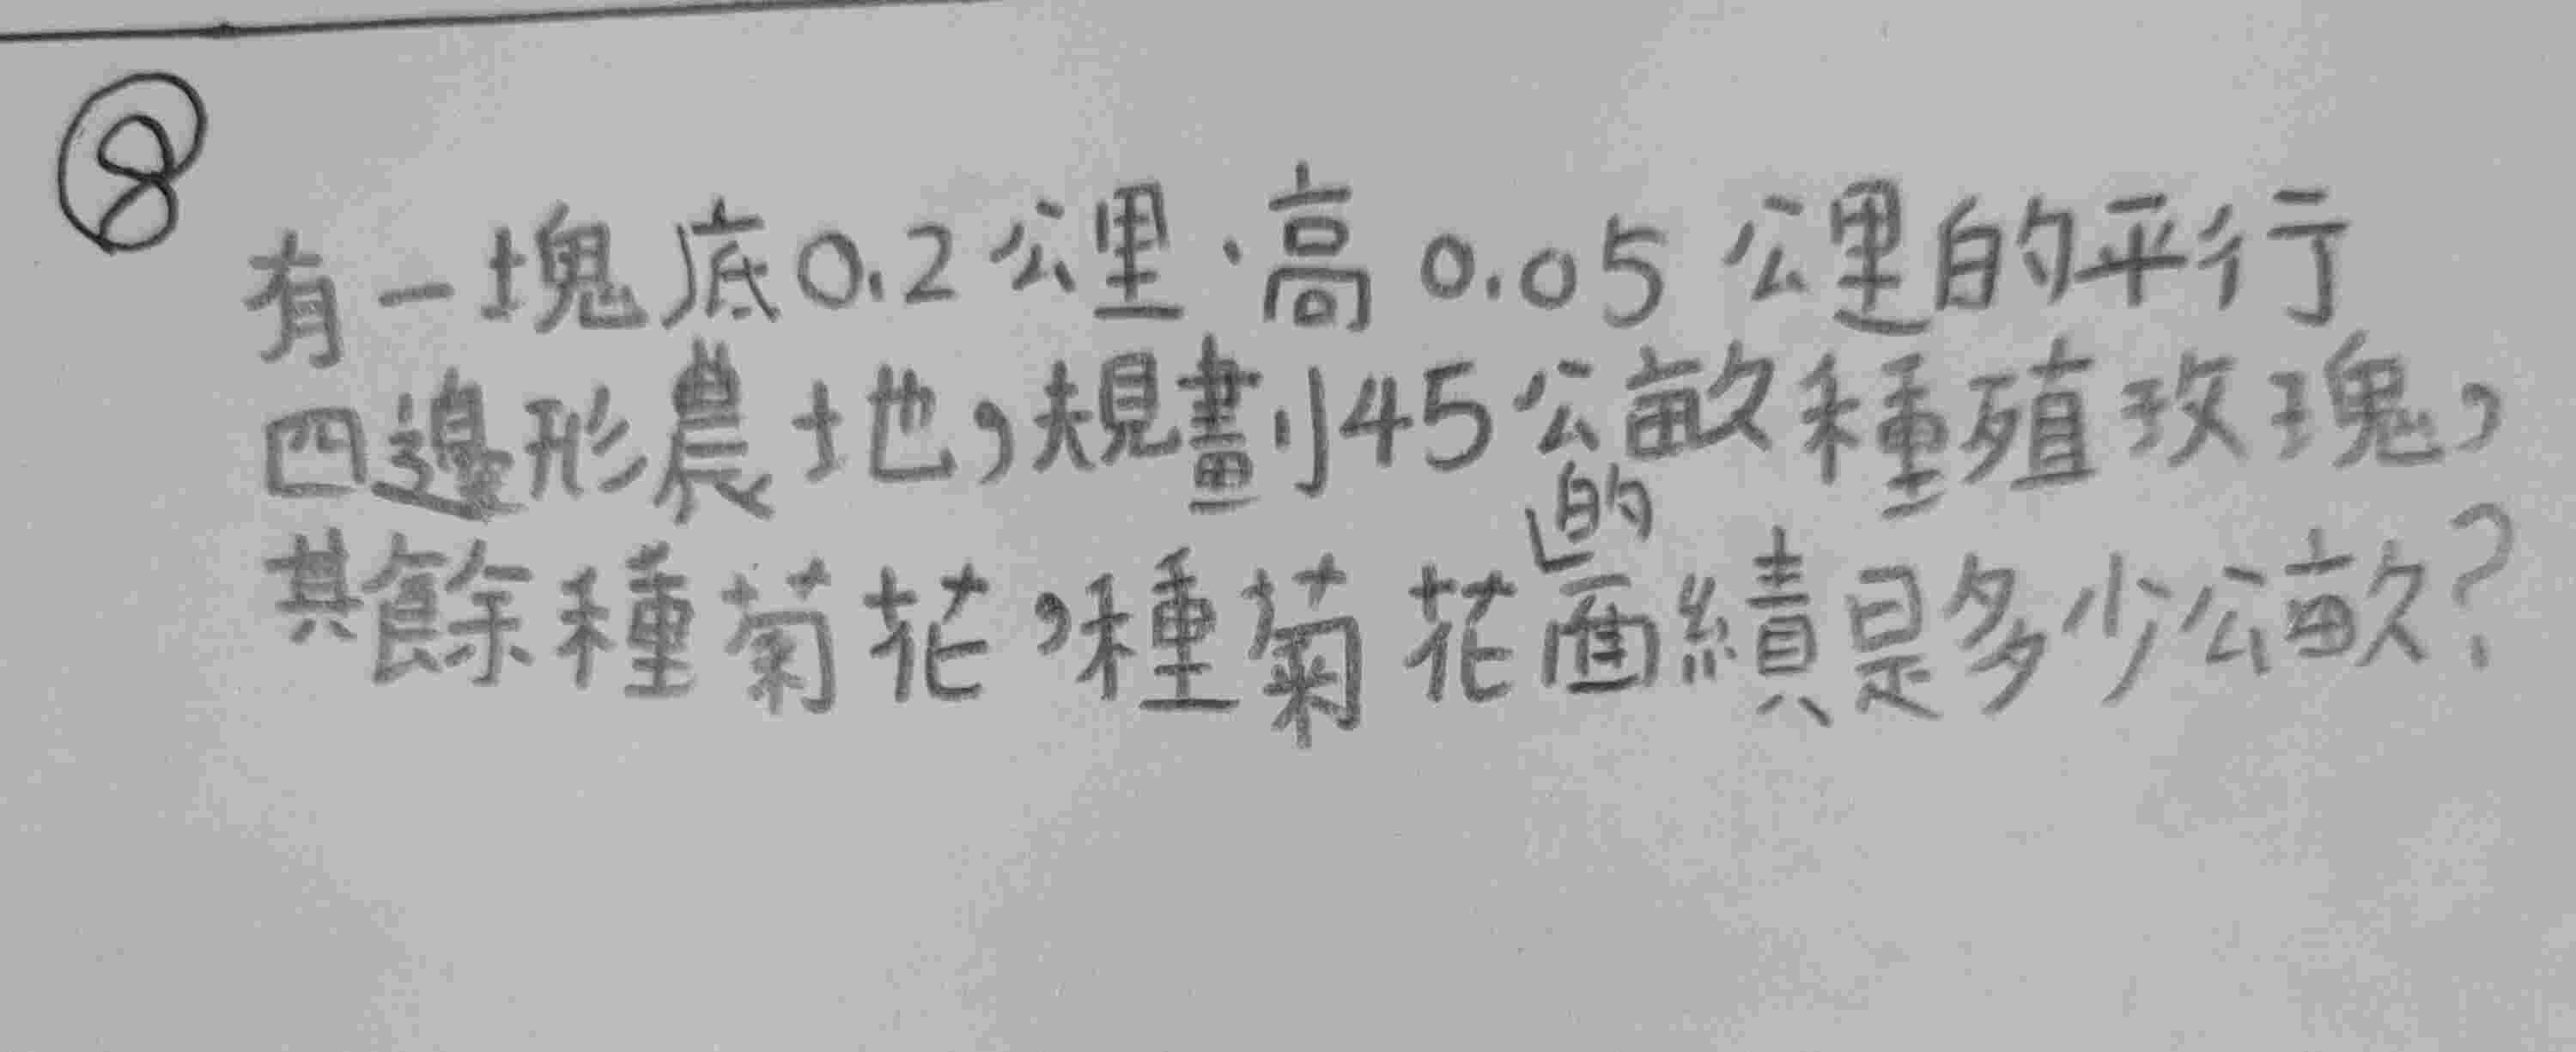 ⑧
有一塊底0.2公里、高0.05公里的平行
四邊形農地,規劃45公畝種殖玫瑰,
其餘種菊花,種菊花的面績是多少公畝?